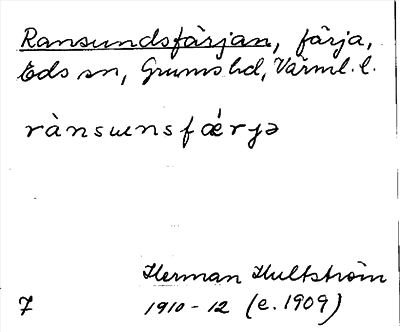 Ransundsfärjan, färja,
Eds sn, Grums hd, Värml. l.
rànsɯnsfǽrjə
Herman Hultström
7 1910-12 (e. 1909)